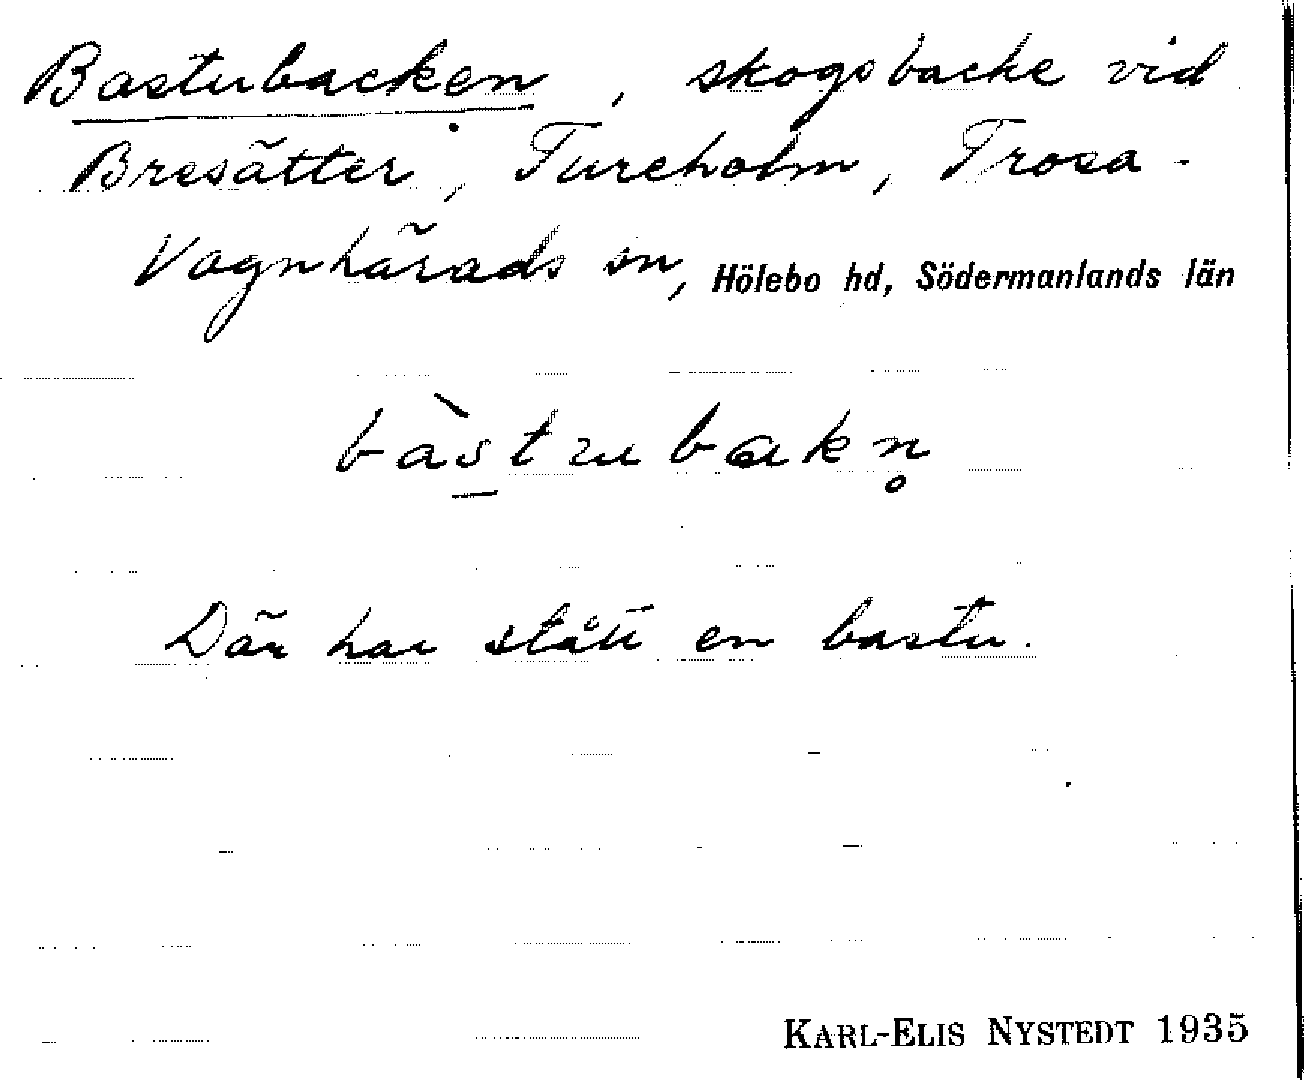 Bastubacken, skogsbacke vid
Bresätter, Tureholm, Trosa-
Vagnhärads sn, Hölebo hd, Södermanlands län
bàs̠tubakn̥
Där har stått en bastu.
KARL-ELIS NYSTEDT 1935